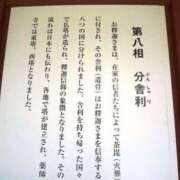 第八相 分舎利
ぶんしゃり
お釈迦さまは、
在家の信者たちによって荼毘(火葬)
され、その舎利(遺骨)はお釈迦さまを信奉する
八つの国に分けられました。
舎利を持ち帰った国々
で仏塔が造られ、釈迦信仰の象徴となりました。
流れは日本にも伝わり、各地で塔が建立され、薬師
寺では東塔、西塔となりました。